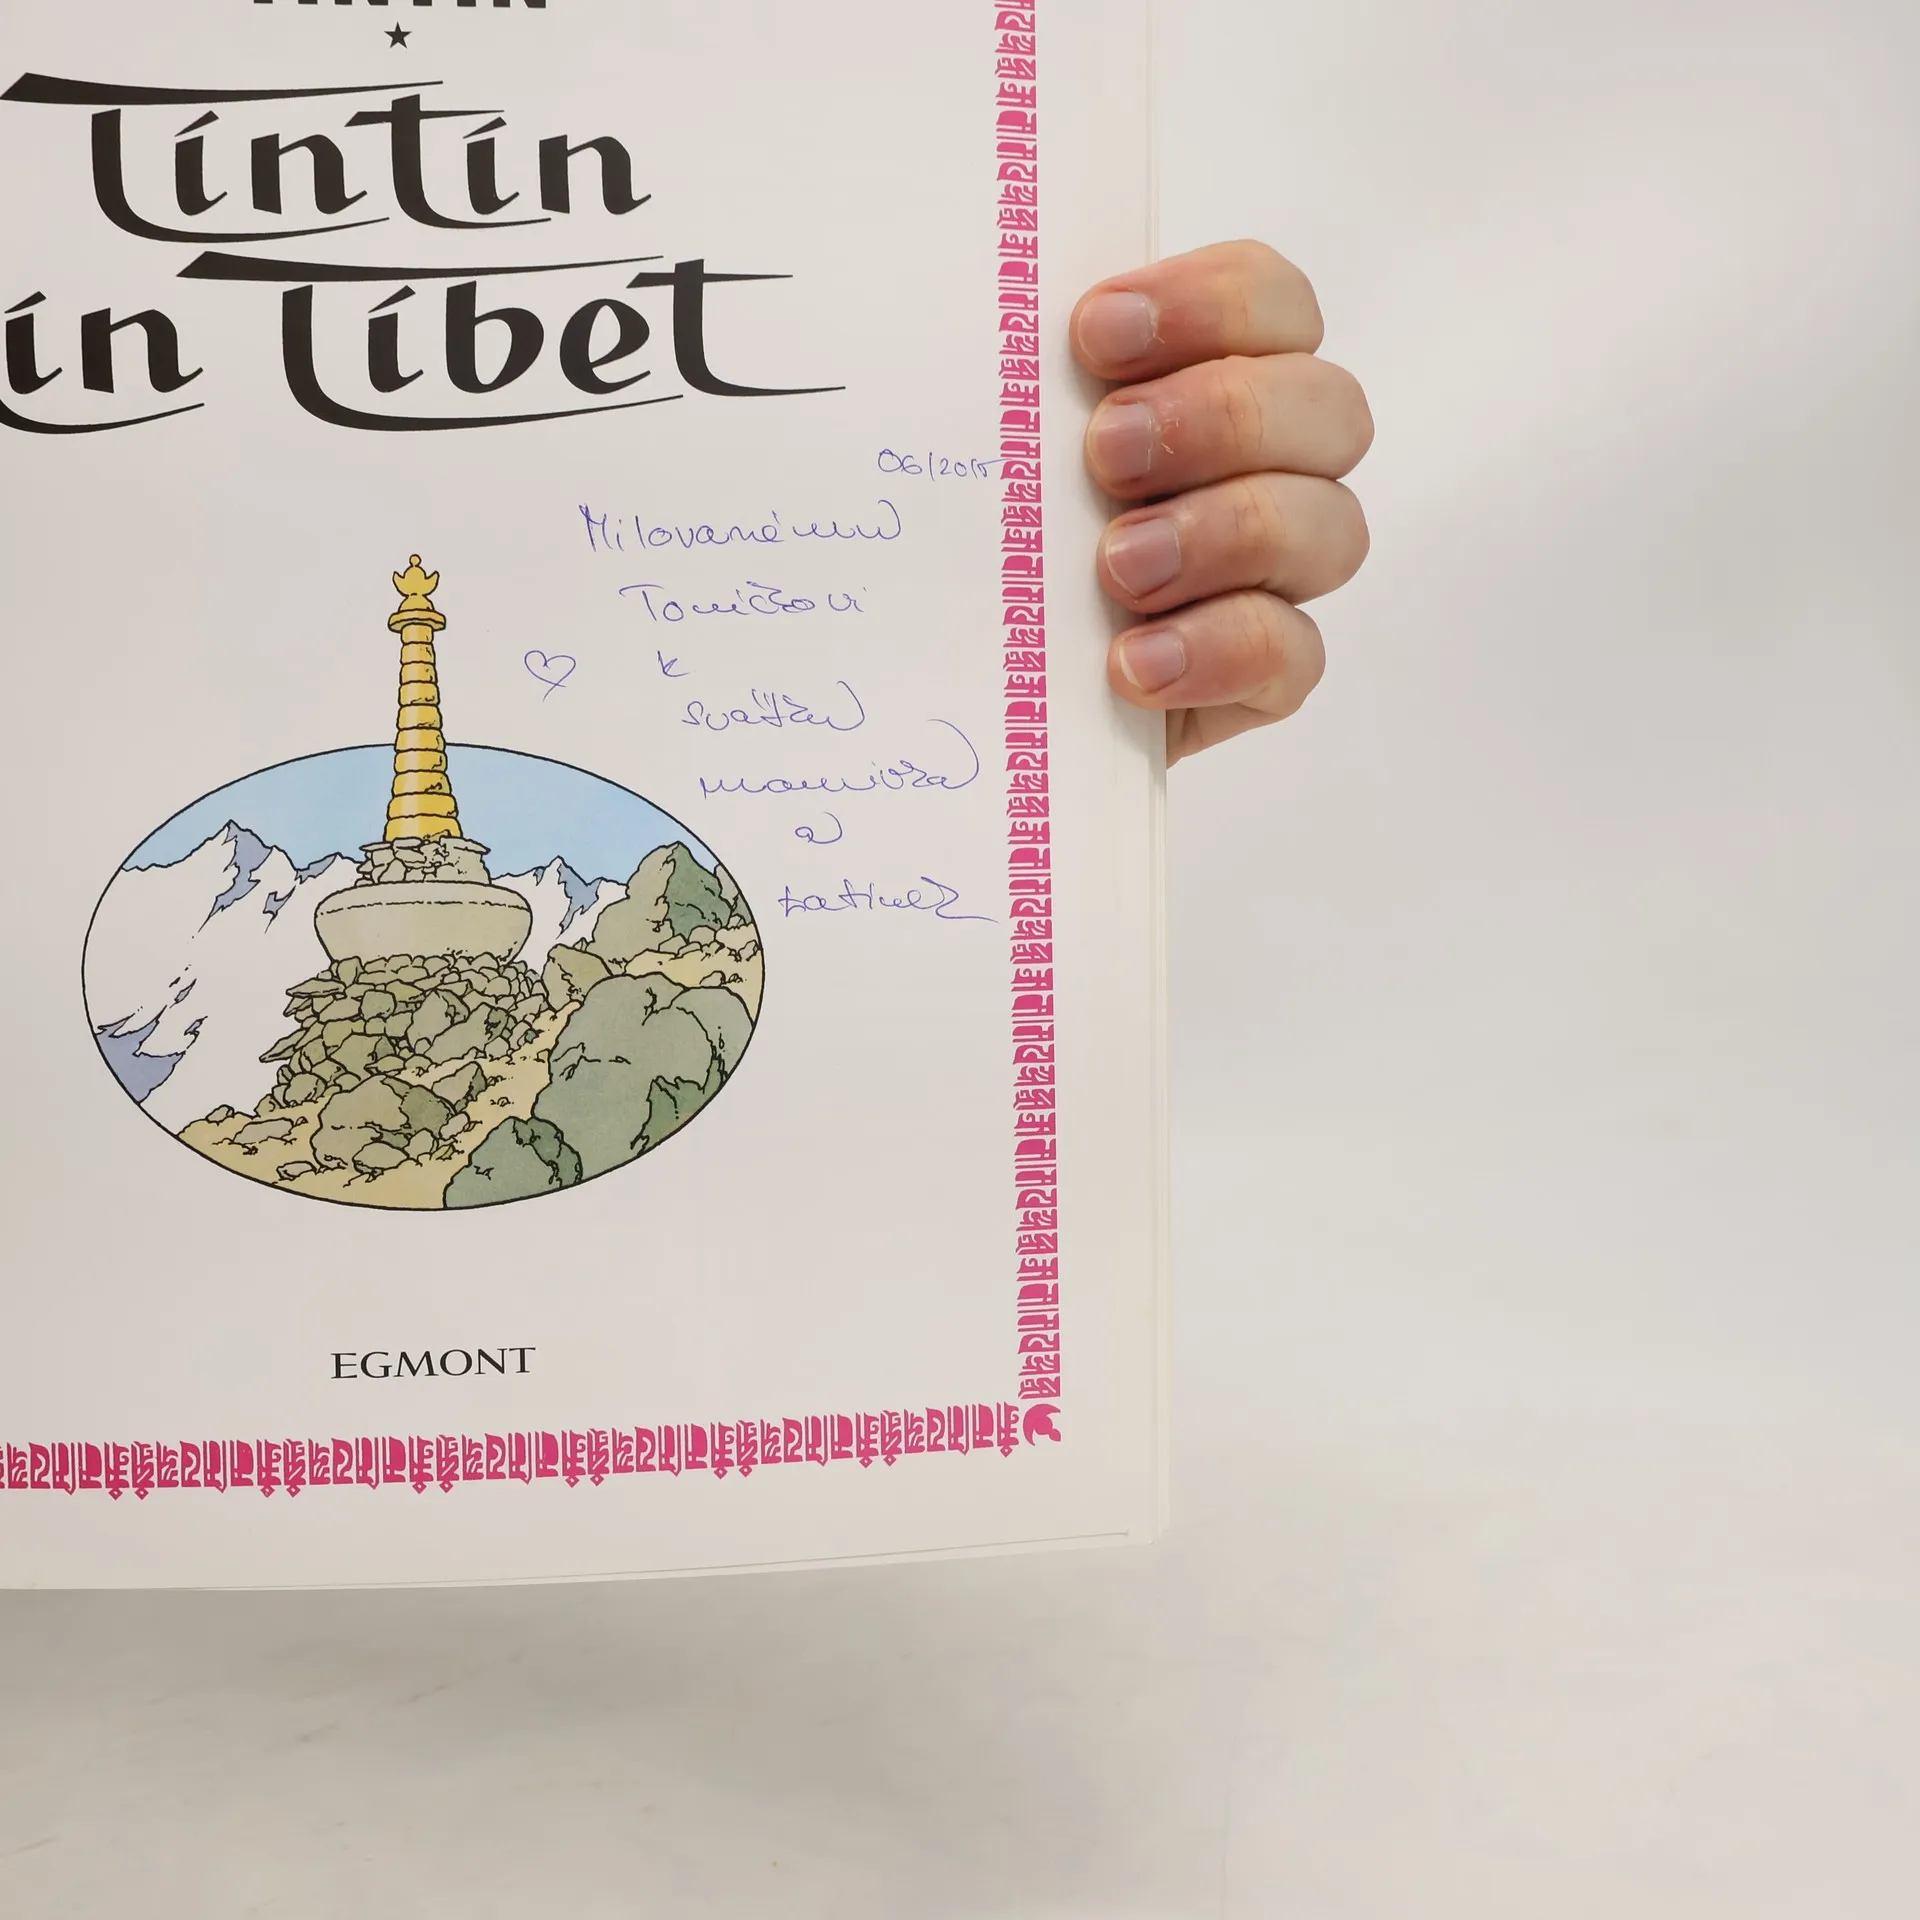 TINTIN
Tintin
in Tibet
06/2015
Milovanému
Tomíčkovi
k
svátku
maminka
a
tatínek
EGMONT